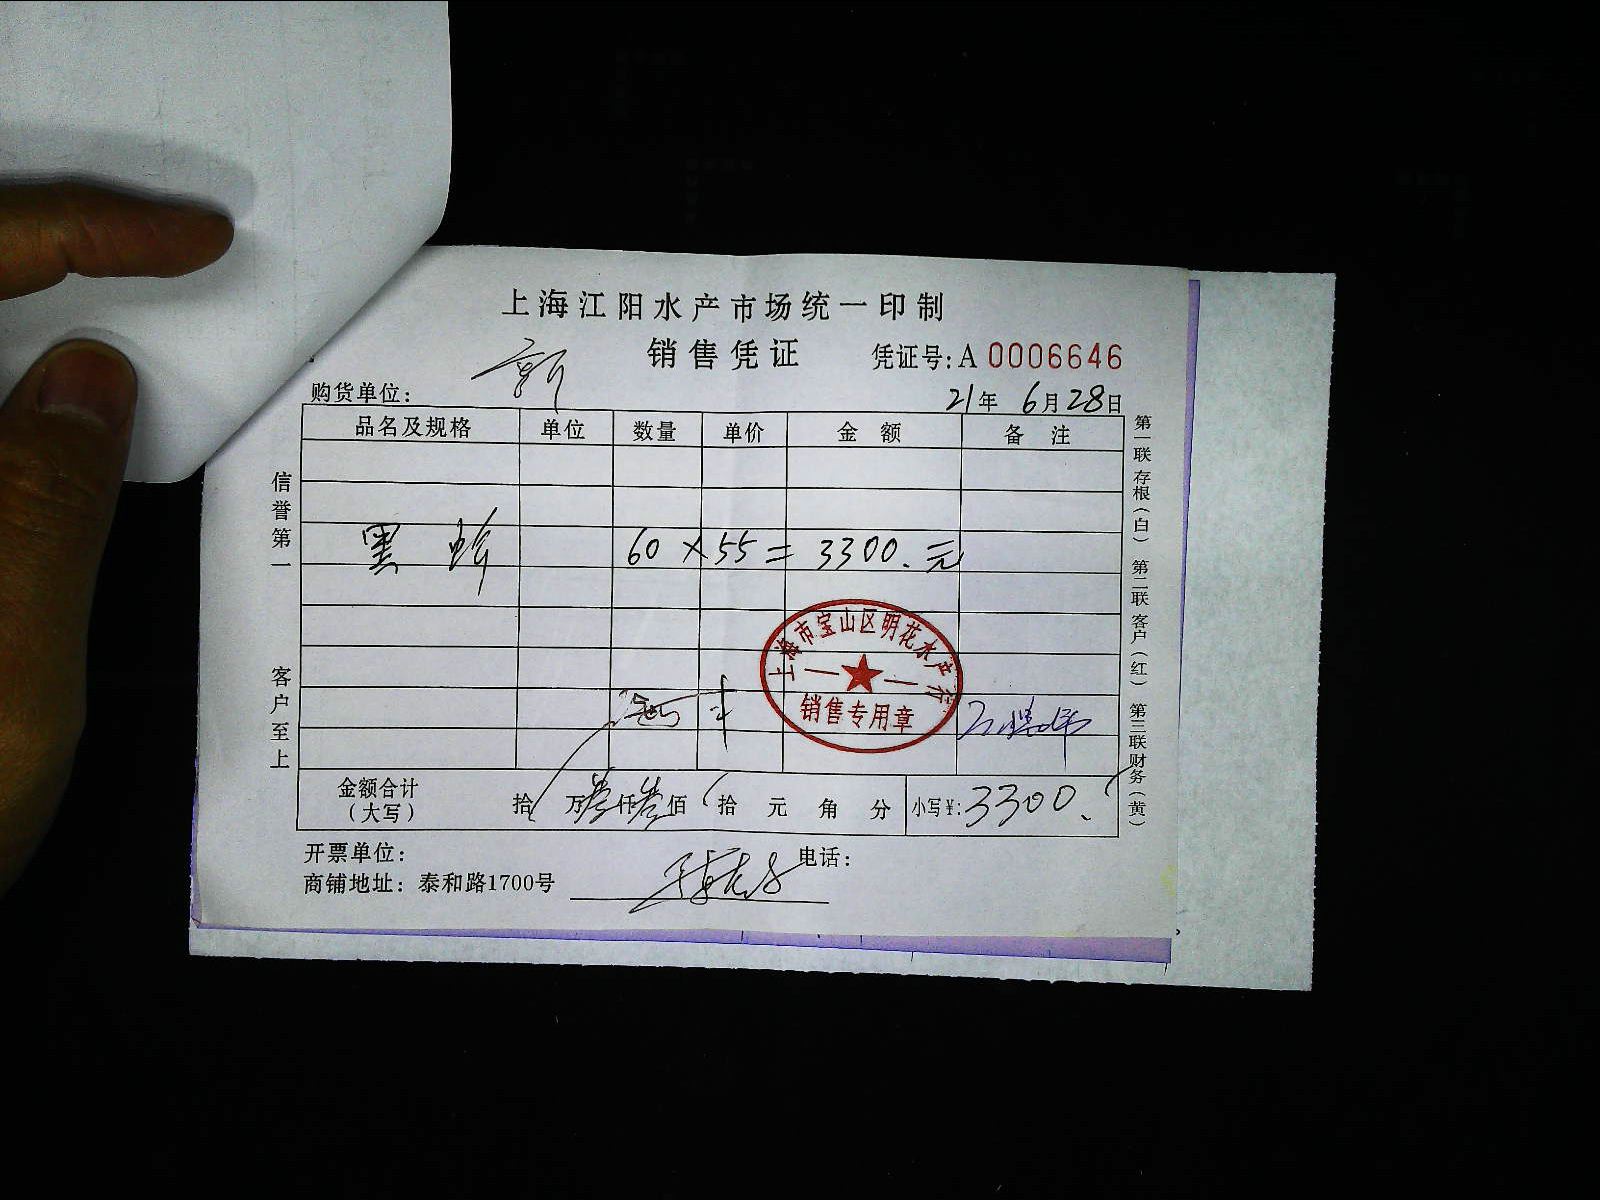 上海江阳水产市场统一印制
销售凭证
凭证号:A 0006646
购货单位:
21年 6月28日
品名及规格 单位 数量 单价 金额 备注
黑 60 × 55 = 3300.元
信誉第一
客户至上
上海市宝山区明花水产行
销售专用章
金额合计
(大写)
拾 万叁仟叁佰 拾 元 角 分 小写¥: 3300.
开票单位: 电话:
商铺地址: 泰和路1700号
第一联存根(白) 第二联客户(红) 第三联财务(黄)